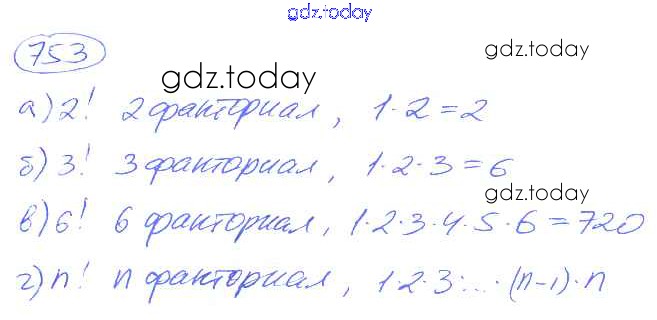 gdz.today
753
gdz.today
gdz.today
а) 2! 2 факториал, 1·2=2
б) 3! 3 факториал, 1·2·3=6
gdz.today
в) 6! 6 факториал, 1·2·3·4·5·6=720
г) n! n факториал, 1·2·3·...·(n-1)·n